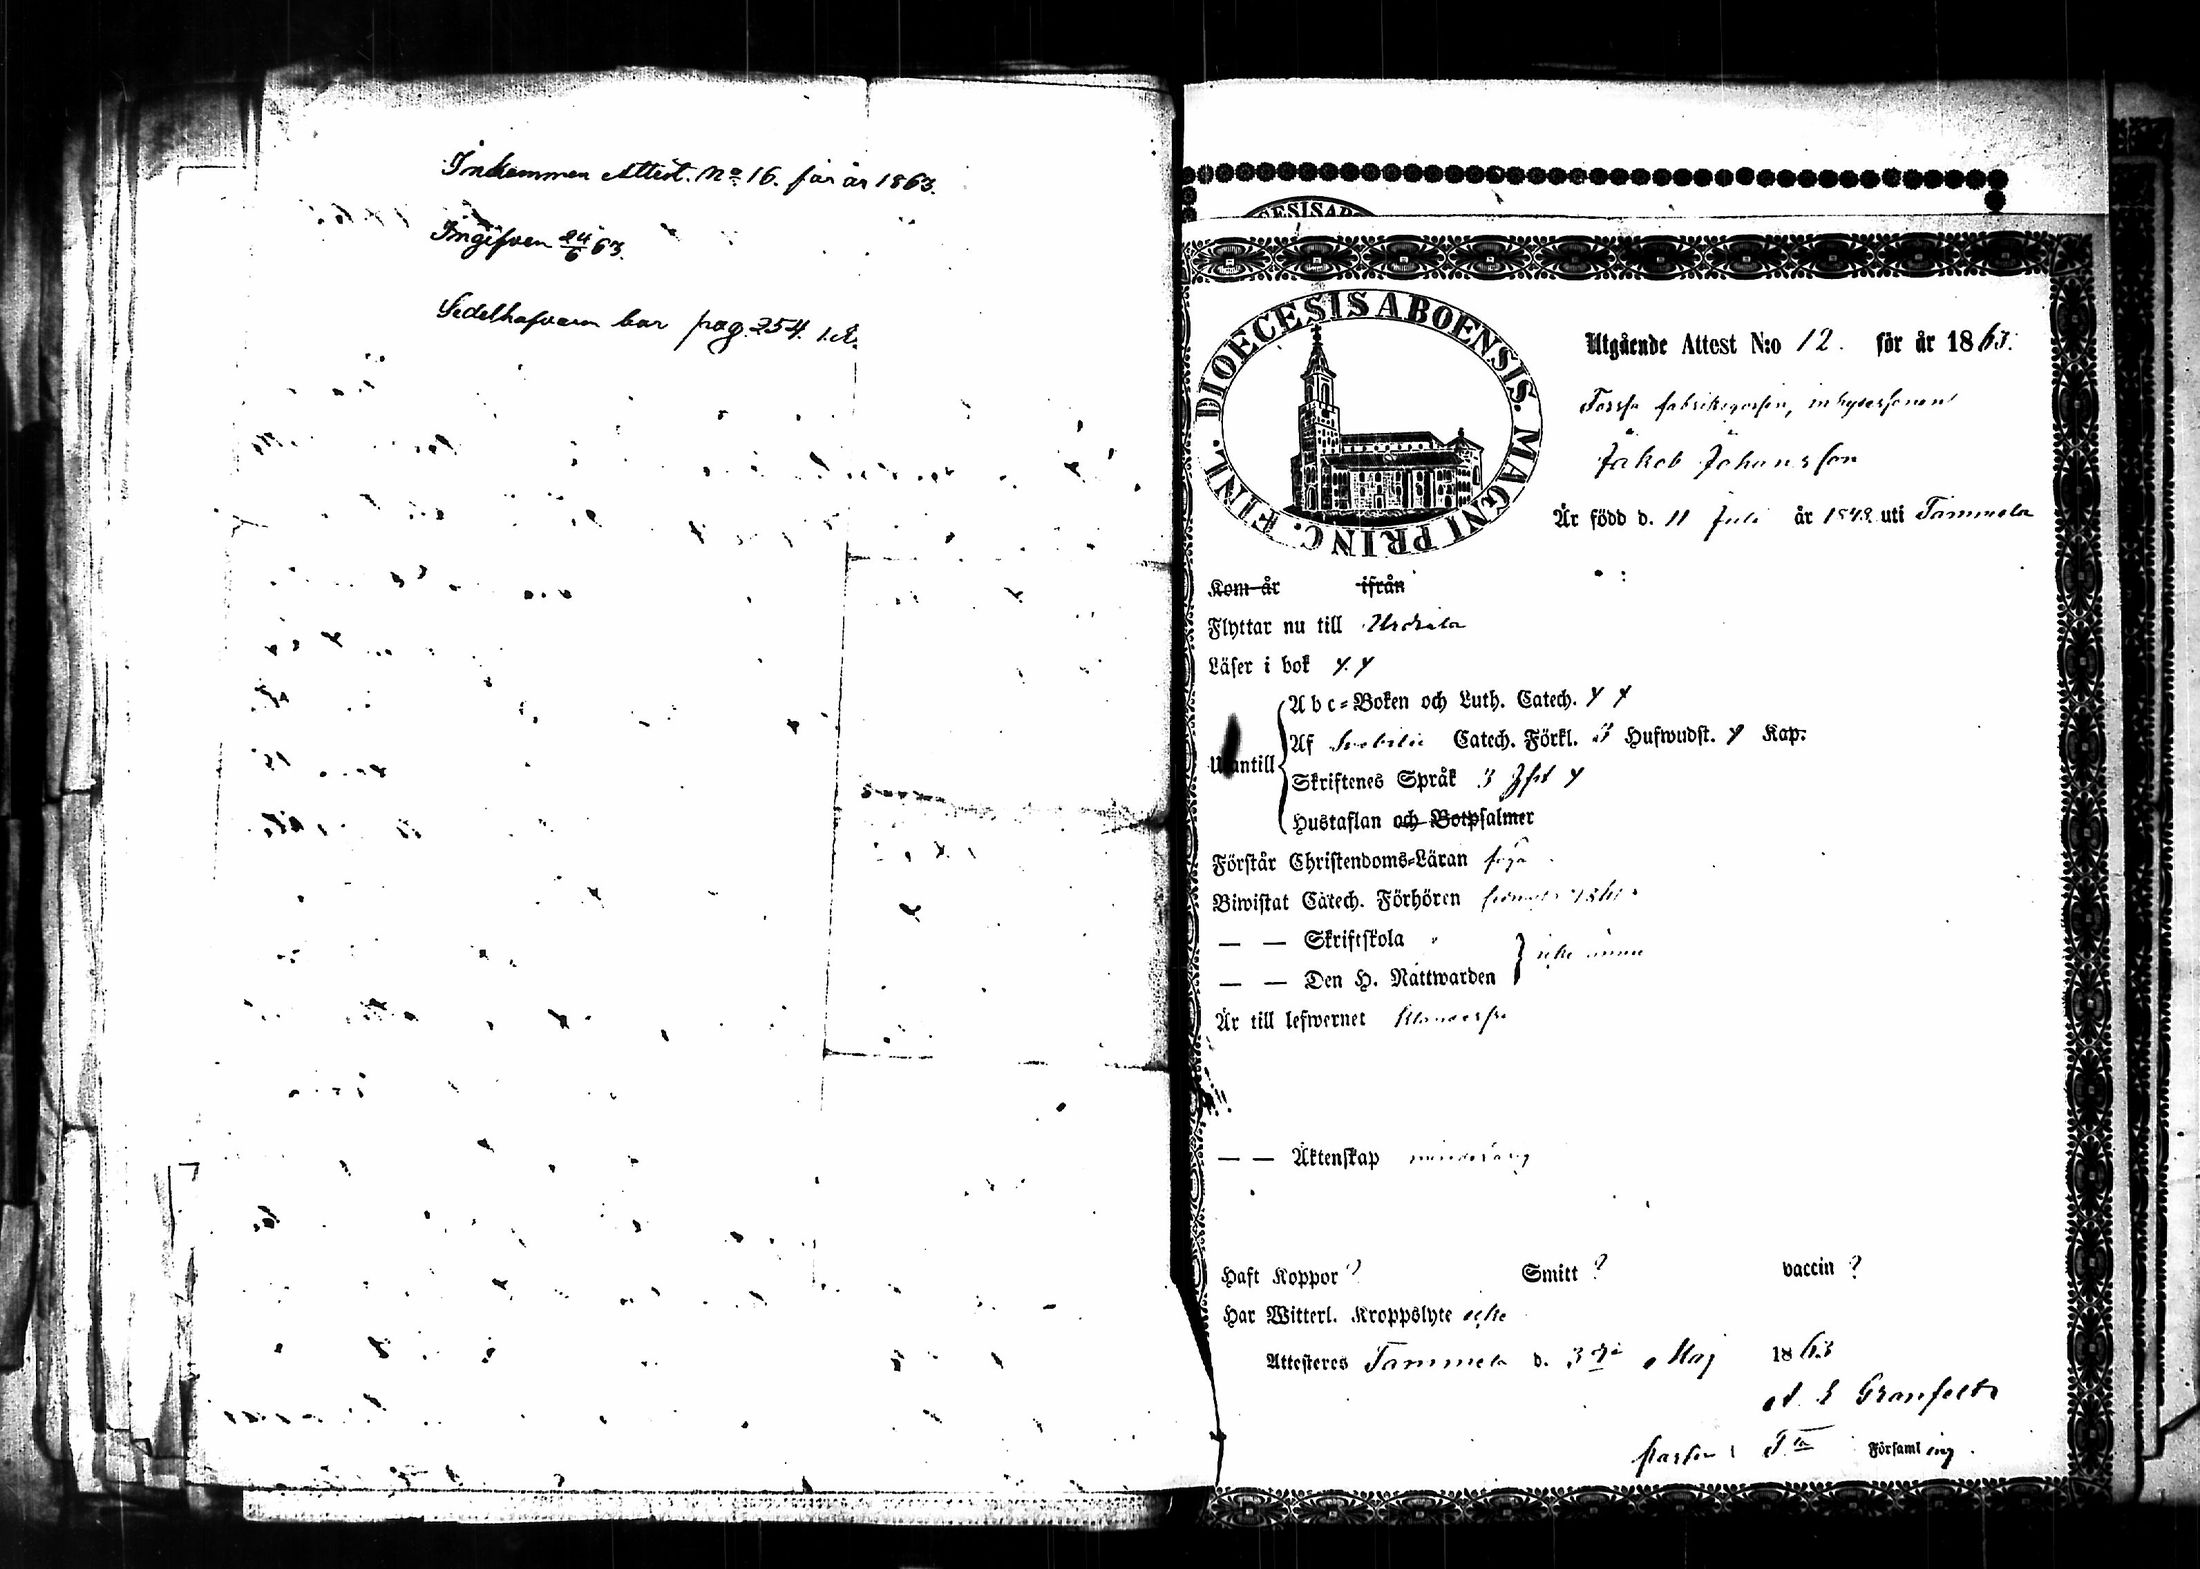 Inkommen Attest. No 16. för år 1863.
Ingifven 24/6 63.
Sedelhafvaren bor pag. 254. 1.
DIOECESIS AB
DIOECESIS ABOENSIS. MAGNI PRINC. FINL.
Utgående Attest N:o 12. för år 1863.
Forssa inhysesonen
Jakob Johansson
Är född d. 11 Juli år 1848 uti Tammela
Kom år ifrån
Flyttar nu till Urdiala
Läser i bok
Abc-Boken och Luth. Catech.
Utantill
Af Svebilii Catech. Förkl. 3 Hufwudst. Kap.
Skriftenes Språk 3
Hustaflan och Botpsalmer
Förstår Christendoms-Läran föga
Biwistat Catech. Förhören
— — Skriftskola
icke ännu
— — Den H. Nattwarden
Är till lefwernet
— — Äktenskap minderårig
Haft Koppor ? Smitt ? vaccin ?
Har Witterl. Kroppslyte icke
Attesteres Tammela d. 3 Maj 1863
A E Granfelt
Pastor i Församling